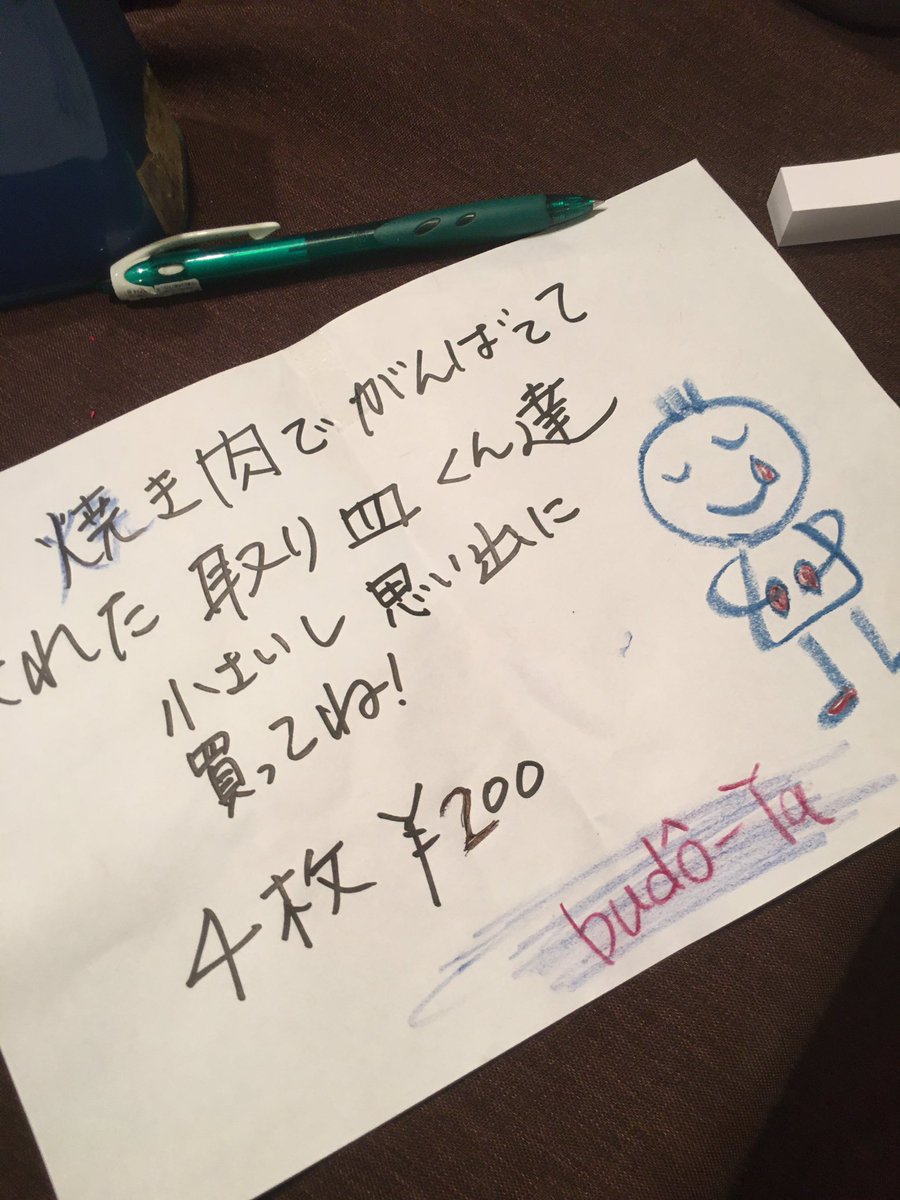 焼き肉でがんばてて
くれた取り皿くん達
小さいし思い出に
買ってね!
4枚¥200
budô-Ya